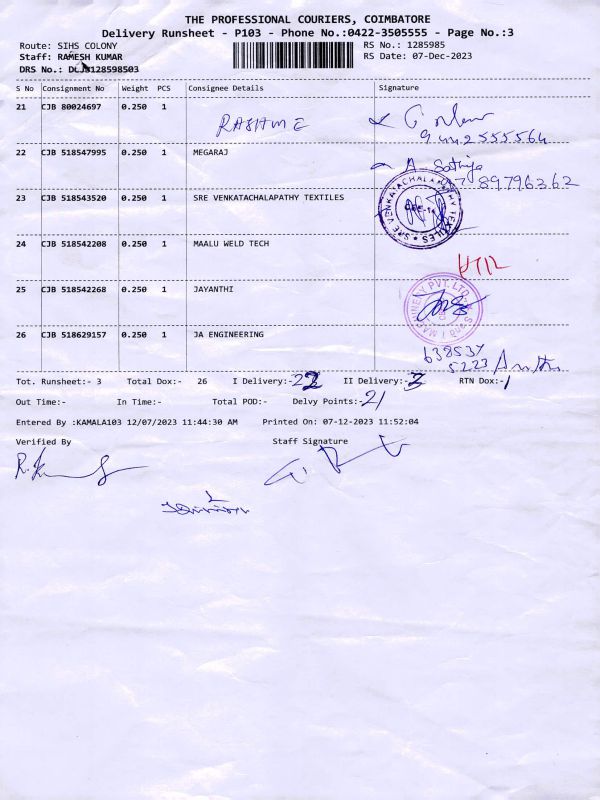 THE PROFESSIONAL COURIERS, COIMBATORE
Delivery Runsheet - P103 - Phone No.:0422-3505555 - Page No.:3
Route: SIHS COLONY
RS No.: 1285985
Staff: RAMESH KUMAR
RS Date: 07-Dec-2023
DRS No.:
S No Consignment No Weight PCS Consignee Details Signature
21 CJB 80024697 0.250 1 RASHME
9442555564
22 CJB 518547995 0.250 1 MEGARAJ A. Sathya
23 CJB 518543520 0.250 1 SRE VENKATACHALAPATHY TEXTILES
SRE VENKATACHALAPATHY TEXTILES
24 CJB 518542208 0.250 1 MAALU WELD TECH
25 CJB 518542268 0.250 1 JAYANTHI
MACHINERY PVT. LTD.
26 CJB 518629157 0.250 1 JA ENGINEERING
638537
5223
Tot. Runsheet:- 3 Total Dox:- 26 I Delivery:-22 II Delivery:-3 RTN Dox:-1
Out Time:- In Time:- Total POD:- Delvy Points:-21
Entered By :KAMALA103 12/07/2023 11:44:30 AM Printed On: 07-12-2023 11:52:04
Verified By Staff Signature